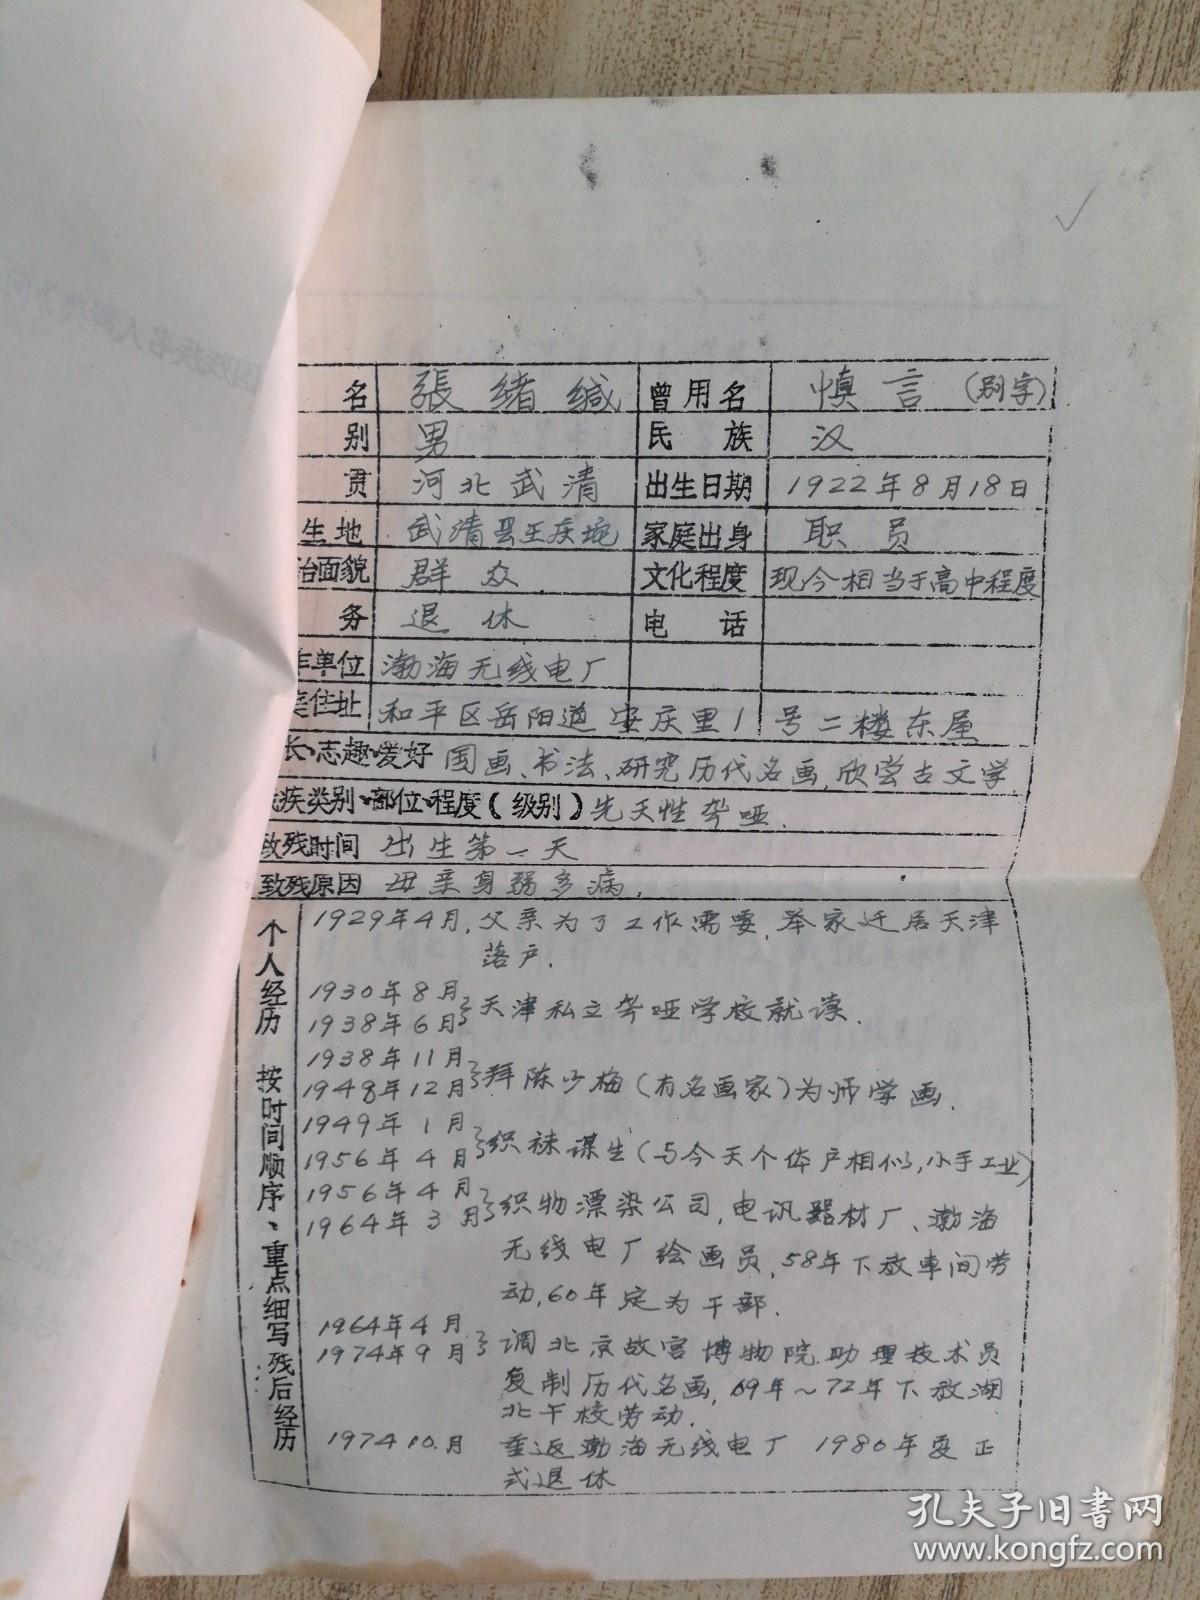 名 張緒缄 曾用名 慎言(别字)
别 男 民族 汉
贯 河北武清 出生日期 1922年8月18日
生地 武清县王庆坨 家庭出身 职员
治面貌 群众 文化程度 现今相当于高中程度
务 退休 电话
作单位 渤海无线电厂
庭住址 和平区岳阳道安庆里1号二楼东屋
长、志趣、爱好 国画、书法、研究历代名画,欣尝古文学
残疾类别、部位、程度(级别) 先天性聋哑.
致残时间 出生第一天
致残原因 母亲身弱多病.
个人经历 按时间顺序、重点细写残后经历
1929年4月,父亲为了工作需要,举家迁居天津
落户.
1930年8月
1938年6月
天津私立聋哑学校就读.
1938年11月
1948年12月
拜陈少梅(有名画家)为师学画.
1949年1月
1956年4月
织袜谋生(与今天个体户相似,小手工业)
1956年4月
1964年3月
织物漂染公司,电讯器材厂、渤海
无线电厂绘画员,58年下放车间劳
动,60年定为干部.
1964年4月
1974年9月
调北京故宫博物院助理技术员
复制历代名画,69年~72年下放湖
北干校劳动.
1974 10.月 重返渤海无线电厂 1980年夏正
式退休
孔夫子旧书网
www.kongfz.com